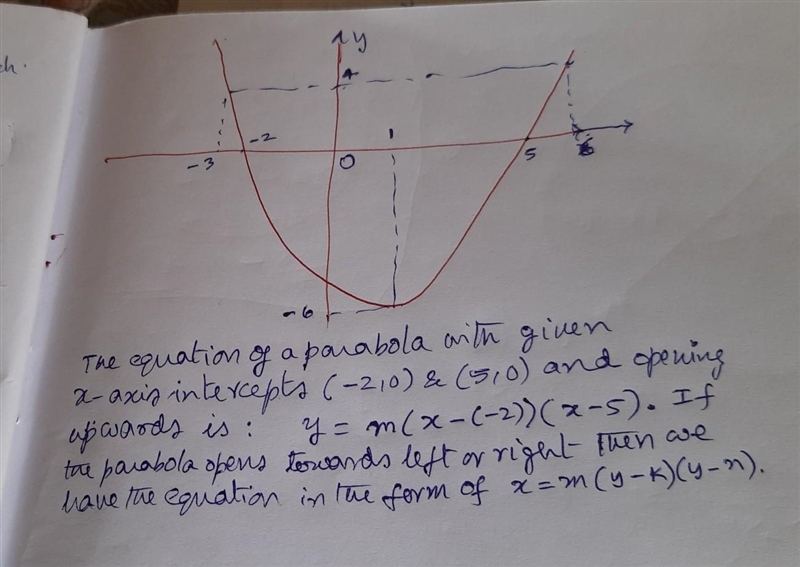 ch.
y
4
1
-3
-2
0
5
6
-6
The equation of a parabola with given
x-axis intercepts (-2,0) & (5,0) and opening
upwards is: y = m(x-(-2))(x-5). If
the parabola opens towards left or right Then we
have the equation in the form of x=m(y-k)(y-n).